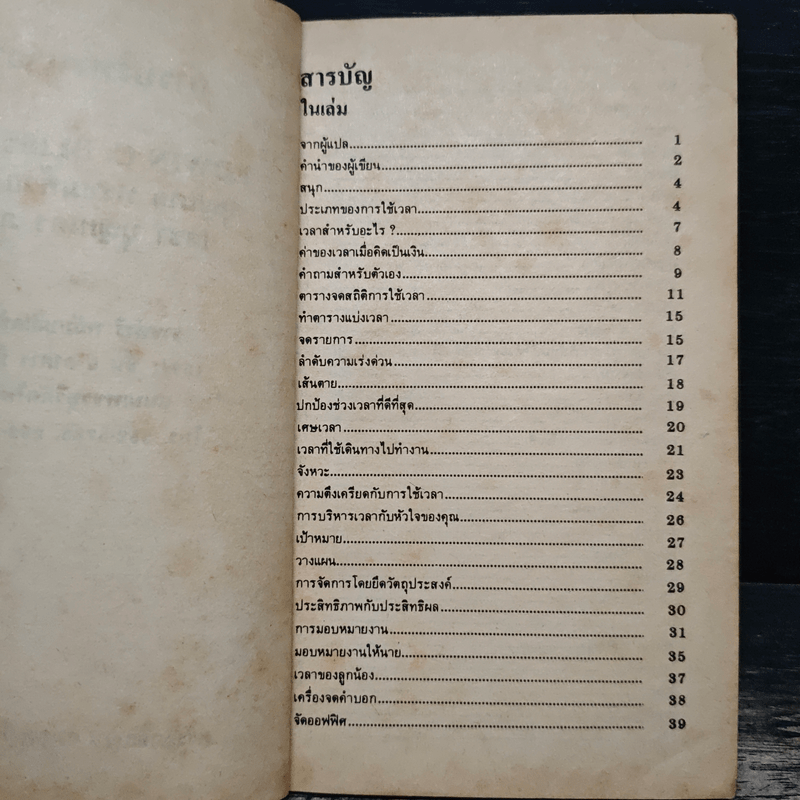 สารบัญ
ในเล่ม
จากผู้แปล 1
คำนำของผู้เขียน 2
สนุก 4
ประเภทของการใช้เวลา 4
เวลาสำหรับอะไร ? 7
ค่าของเวลาเมื่อคิดเป็นเงิน 8
คำถามสำหรับตัวเอง 9
ตารางจดสถิติการใช้เวลา 11
ทำตารางแบ่งเวลา 15
จดรายการ 15
ลำดับความเร่งด่วน 17
เส้นตาย 18
ปกป้องช่วงเวลาที่ดีที่สุด 19
เศษเวลา 20
เวลาที่ใช้เดินทางไปทำงาน 21
จังหวะ 23
ความตึงเครียดกับการใช้เวลา 24
การบริหารเวลากับหัวใจของคุณ 26
เป้าหมาย 27
วางแผน 28
การจัดการโดยยึดวัตถุประสงค์ 29
ประสิทธิภาพกับประสิทธิผล 30
การมอบหมายงาน 31
มอบหมายงานให้นาย 35
เวลาของลูกน้อง 37
เครื่องจดคำบอก 38
จัดออฟฟิศ 39